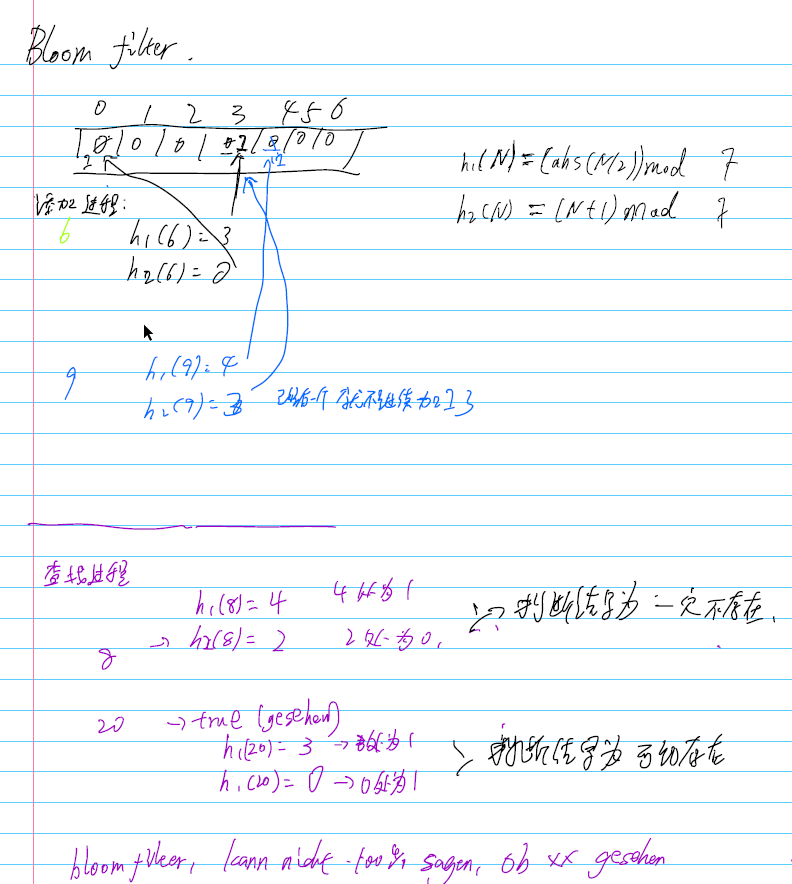 Bloom filter.
0 1 2 3 4 5 6
0 0 0 0 1 0 0 0
1 1
h1(N) = (abs(N/2)) mod 7
h2(N) = (N+1) mod 7
添加过程:
6 h1(6) = 3
h2(6) = 0
9 h1(9) = 4
h2(9) = 3
查找过程
h1(8) = 4 4处为1
8 → h2(8) = 2 2处为0,
判断结果为 一定不存在.
20 → true (gesehen)
h1(20) = 3 → 3处为1
h1(20) = 0 → 0处为1
判断结果为 可能存在
bloom filter, kann nicht 100% sagen, ob xx gesehen